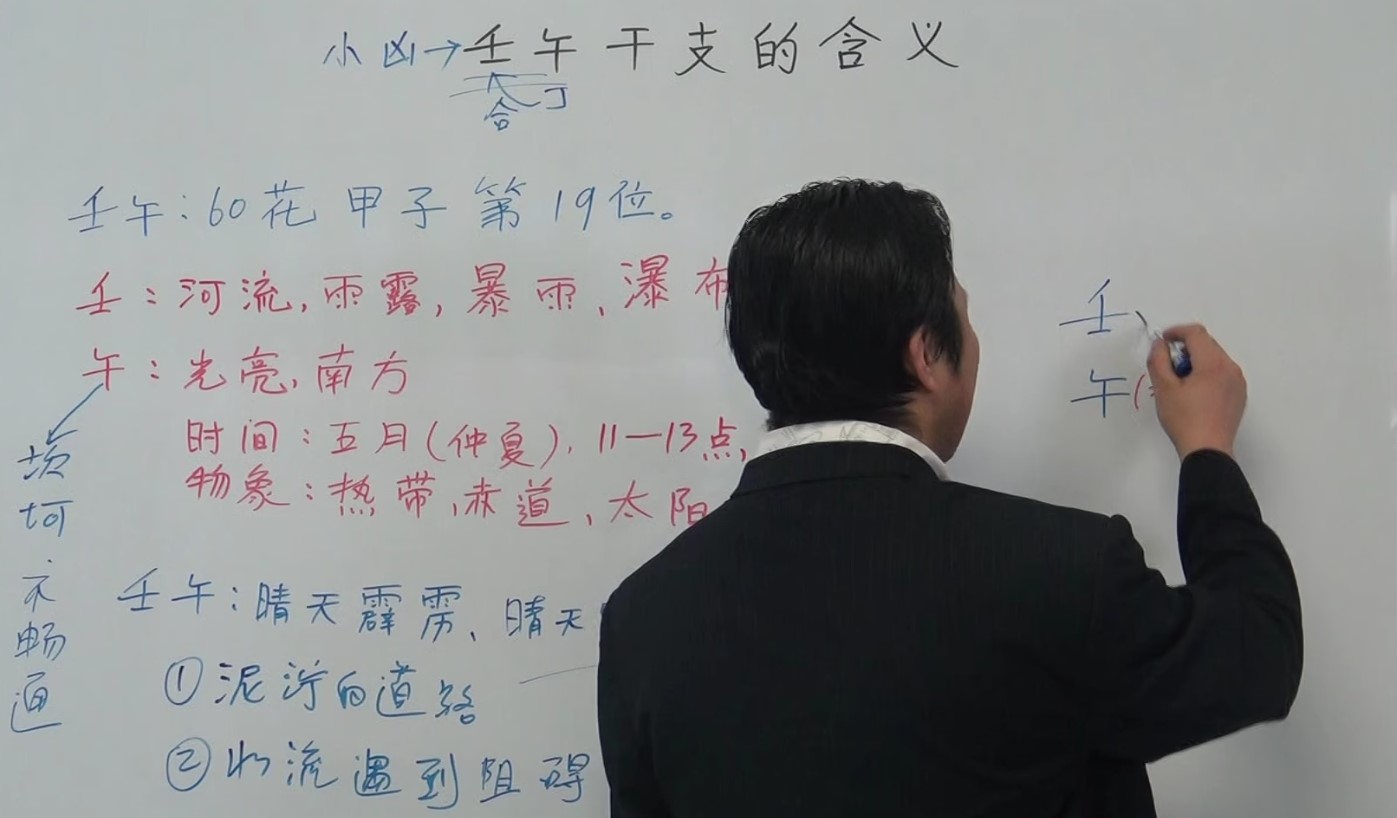 小凶→壬午干支的含义
合 丁
壬午:60花甲子第19位。
壬:河流,雨露,暴雨、瀑布
午:光亮,南方
时间:五月(仲夏),11—13点,
物象:热带,赤道、太阳
坎坷不畅通
壬午:晴天霹雳、晴天
①泥泞的道路
②水流遇到阻碍
壬
午(